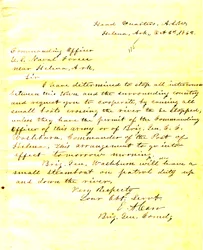 Head Quarters, A.S.W.
Helena, Ark, Oct 2d 1862.
Commanding Officer
U.S. Naval Force
near Helena, Ark.
Sir
I have determined to stop all intercourse
between this town and the surrounding country
and request you to cooperate, by causing all
small boats crossing the river to be stopped,
unless they have the permit of the Commanding
Officer of this army or of Brig. Gen. C. C.
Washburn, Commander of the Post of
Helena. This arrangement to go into
effect to morrow morning.
Brig. Gen. Washburn will have a
small steamboat on patrol duty up
and down the river.
Very Respectfy
Your Obt. Servt.
E. A. Carr
Brig. Gen. Comdg.